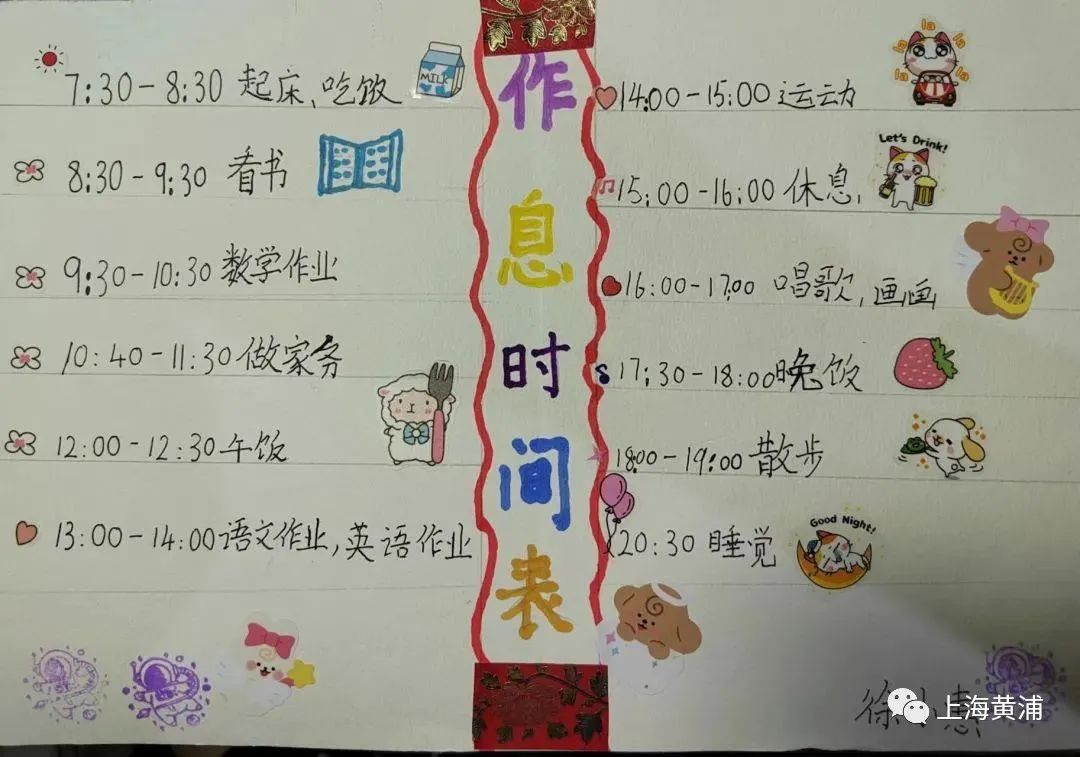 作息时间表
7:30-8:30 起床、吃饭
MILK
8:30-9:30 看书
9:30-10:30 数学作业
10:40-11:30 做家务
12:00-12:30 午饭
13:00-14:00 语文作业,英语作业
la la la la la
14:00-15:00 运动
Let's Drink!
15:00-16:00 休息,
16:00-17:00 唱歌,画画
s 17:30-18:00 晚饭
18:00-19:00 散步
20:30 睡觉
Good Night!
徐小慧
上海黄浦